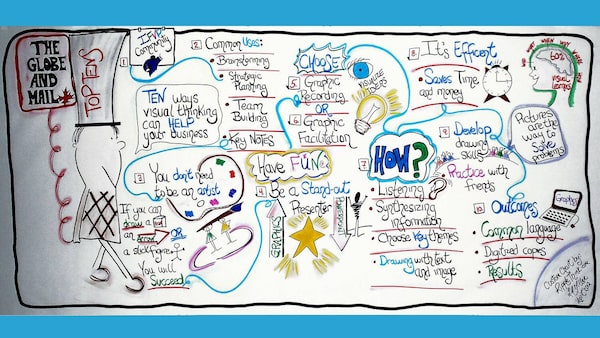 THE
GLOBE
AND
MAIL
TOP TENS
1
"IF IV"
Community
TEN ways
visual thinking
can HELP
your business
2 Common Uses:
• Brainstorming
• Strategic
Planning
• Team
Building
• Key Notes
3
You don't need
to be an artist
If you can
draw a
an
Arrow OR
a stick figure
You will
Succeed
4 Have FUN
Be a Stand-out
Presenter
GRAPHICS
CHOOSE
5 Graphic
Recording
OR
6 Graphic
Facilitation
VISUALIZE
IDEAS
7
HOW?
• Listening
• Synthesizing
information
• Choose Key themes
• Drawing with text
and image
8 It's Efficient
Saves Time
and money
60%
Visual
Learners
9 Develop
drawing
skills
Practice with
friends
Pictures are
the way to
Solve
problems
10 Outcomes
• Common language
• Digitized copies
• Results
Graphics